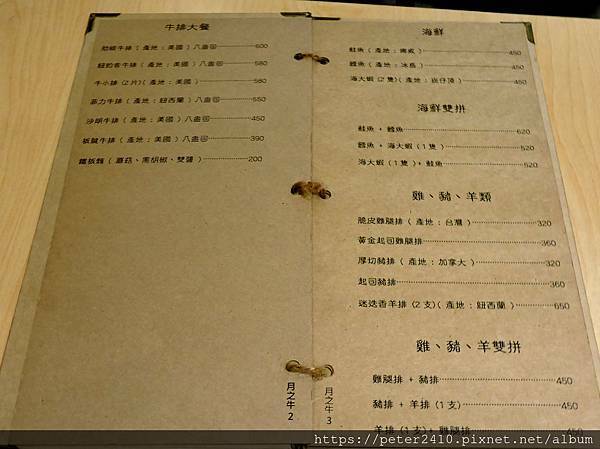 牛排大餐
肋眼牛排 ( 產地 : 美國 ) 八盎司 600
紐約客牛排 ( 產地 : 美國 ) 八盎司 580
牛小排 (2片)( 產地 : 美國 ) 580
菲力牛排 ( 產地 : 紐西蘭 ) 八盎司 550
沙朗牛排 ( 產地 : 美國 ) 八盎司 450
板腱牛排 ( 產地 : 美國 ) 八盎司 390
鐵板麵 ( 蘑菇、黑胡椒、雙醬 ) 200
月之牛 2
海鮮
鮭魚 ( 產地 : 挪威 ) 450
鱈魚 ( 產地 : 冰島 ) 450
海大蝦 (2隻)( 產地 : 崁仔頂 ) 450
海鮮雙拼
鮭魚 + 鱈魚 620
鱈魚 + 海大蝦 (1隻 ) 520
海大蝦 (1隻 )+ 鮭魚 520
雞、豬、羊類
脆皮雞腿排 ( 產地 : 台灣 ) 320
黃金起司雞腿排 360
厚切豬排 ( 產地 : 加拿大 ) 320
起司豬排 360
迷迭香羊排 (2支)( 產地 : 紐西蘭 ) 650
雞、豬、羊雙拼
雞腿排 + 豬排 450
豬排 + 羊排 (1支) 450
羊排 (1支)+ 雞腿排 450
月之牛 3
https://peter2410.pixnet.net/album